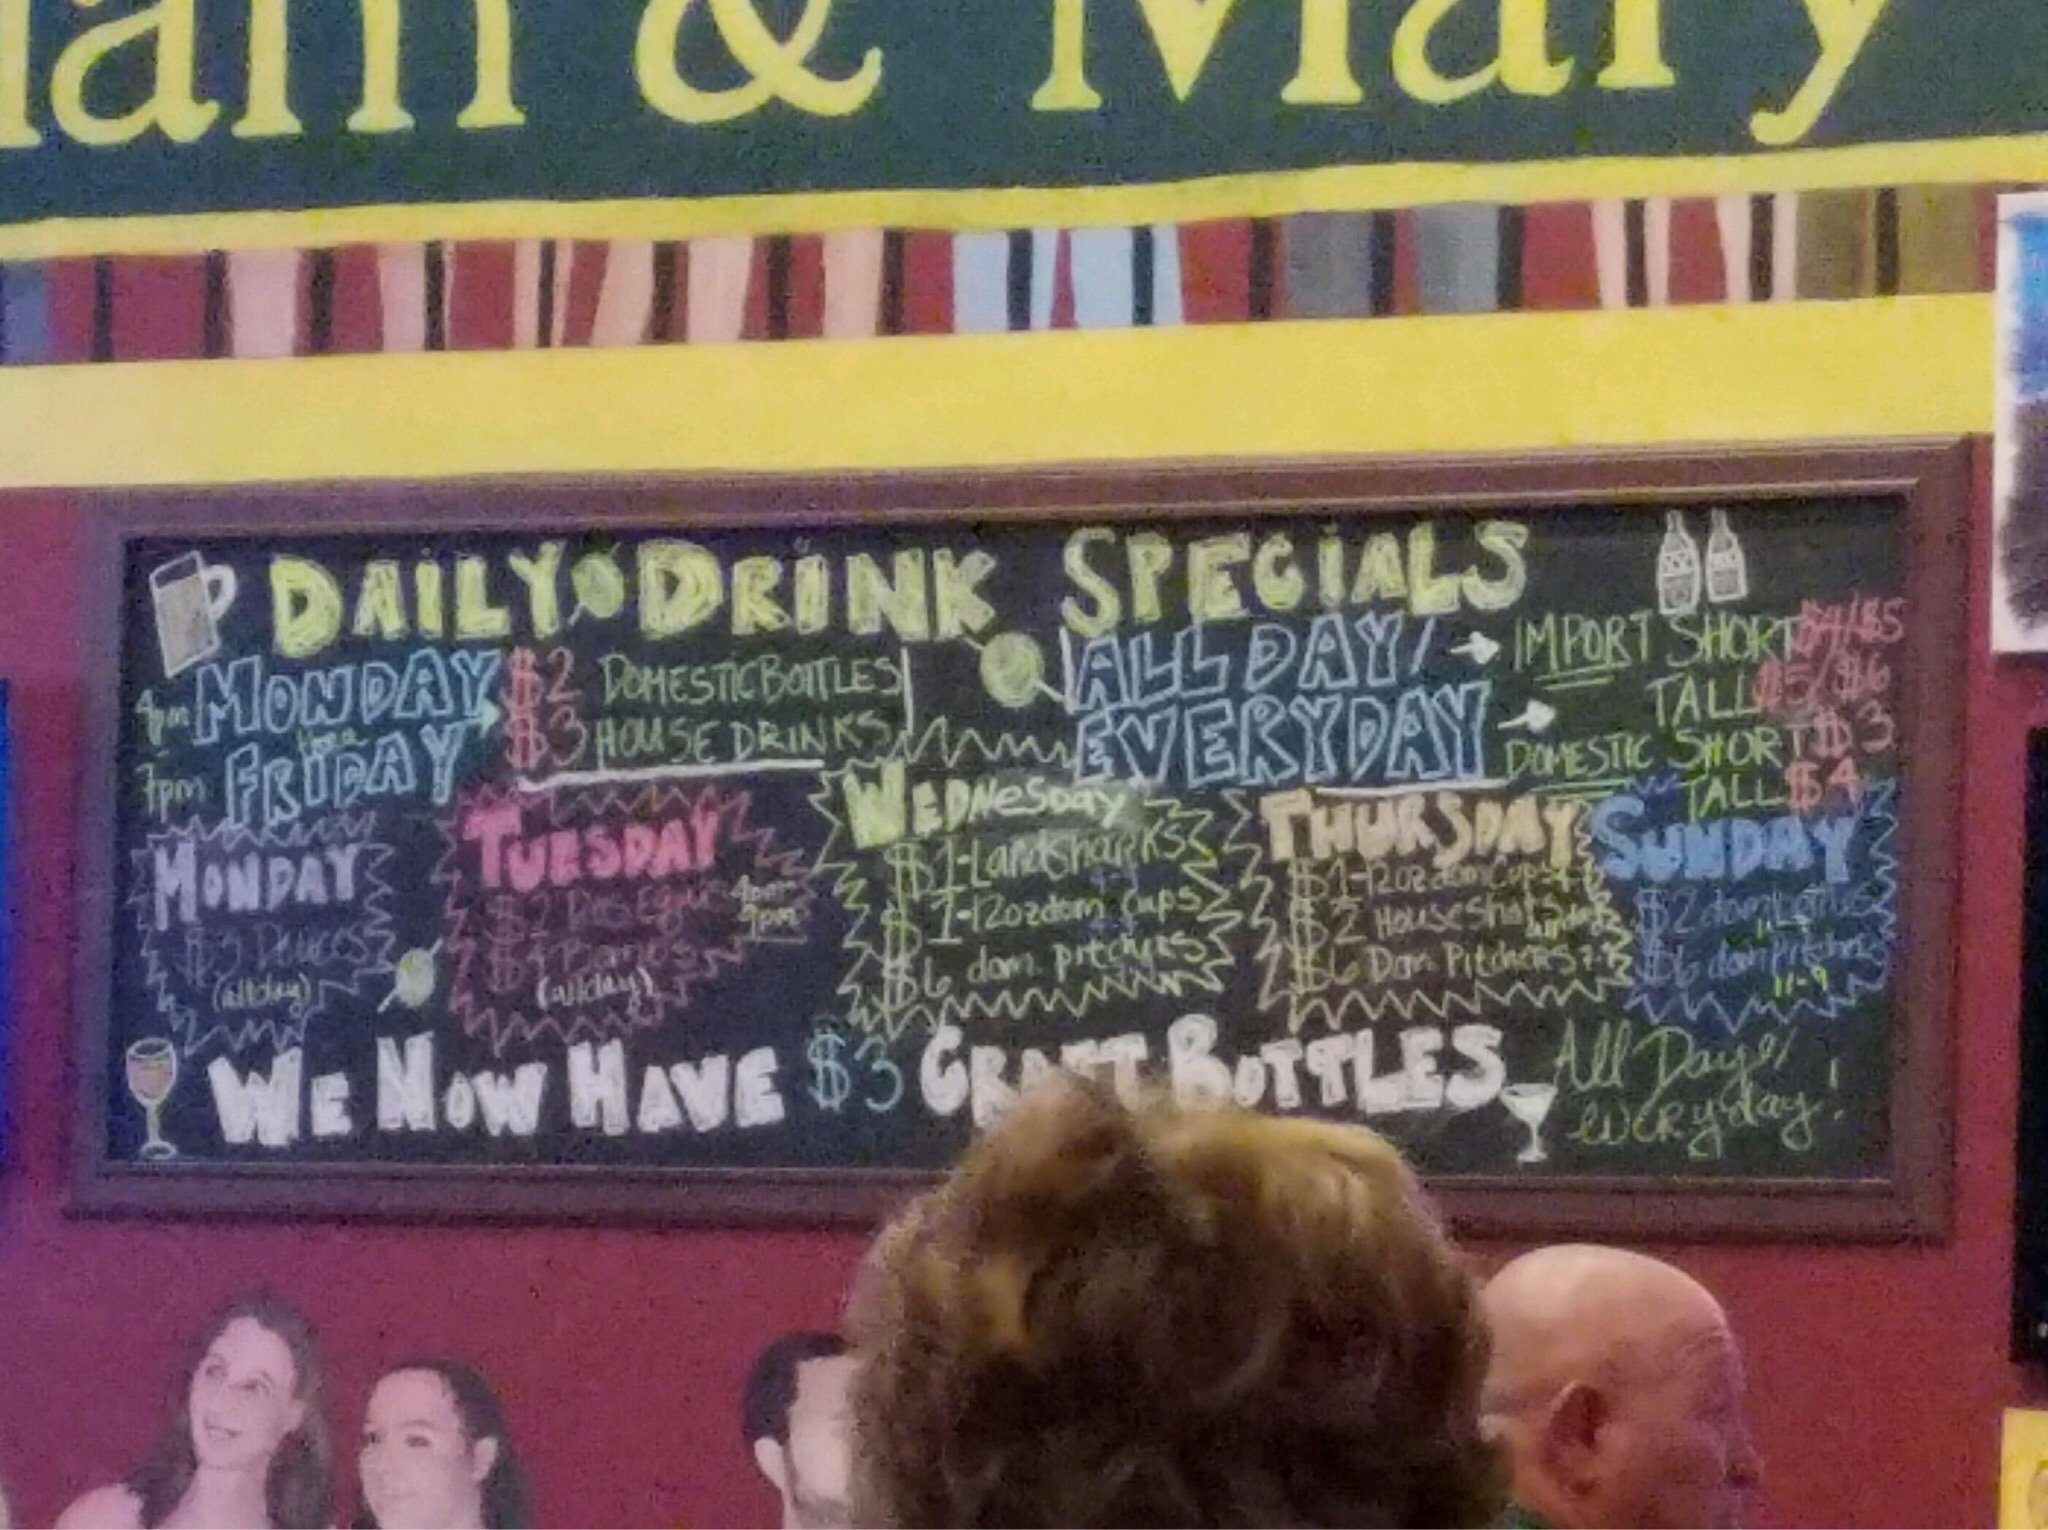 iam & Mary
DAILY DRINK SPECIALS
4pm MONDAY $2 DOMESTIC BOTTLES
7pm FRIDAY $3 HOUSE DRINKS
ALL DAY/
EVERYDAY
IMPORT SHORT $4/$5
TALL $5/$6
DOMESTIC SHORT $3
TALL $4
MONDAY
$3
(allday)
TUESDAY
$2 Dos Equis 4pm
9pm
$4
(allday)
WEDNESDAY
$1-Landsharks
$1-12oz dom cups
$6 dom. pitchers
THURSDAY
$1-12oz dom cups
$2 House Shots
$6 Dom Pitchers
SUNDAY
$2 dom bottles
$6 dom Pitchers
11-9
WE NOW HAVE $3 CRAFT BOTTLES All Day/
everyday!